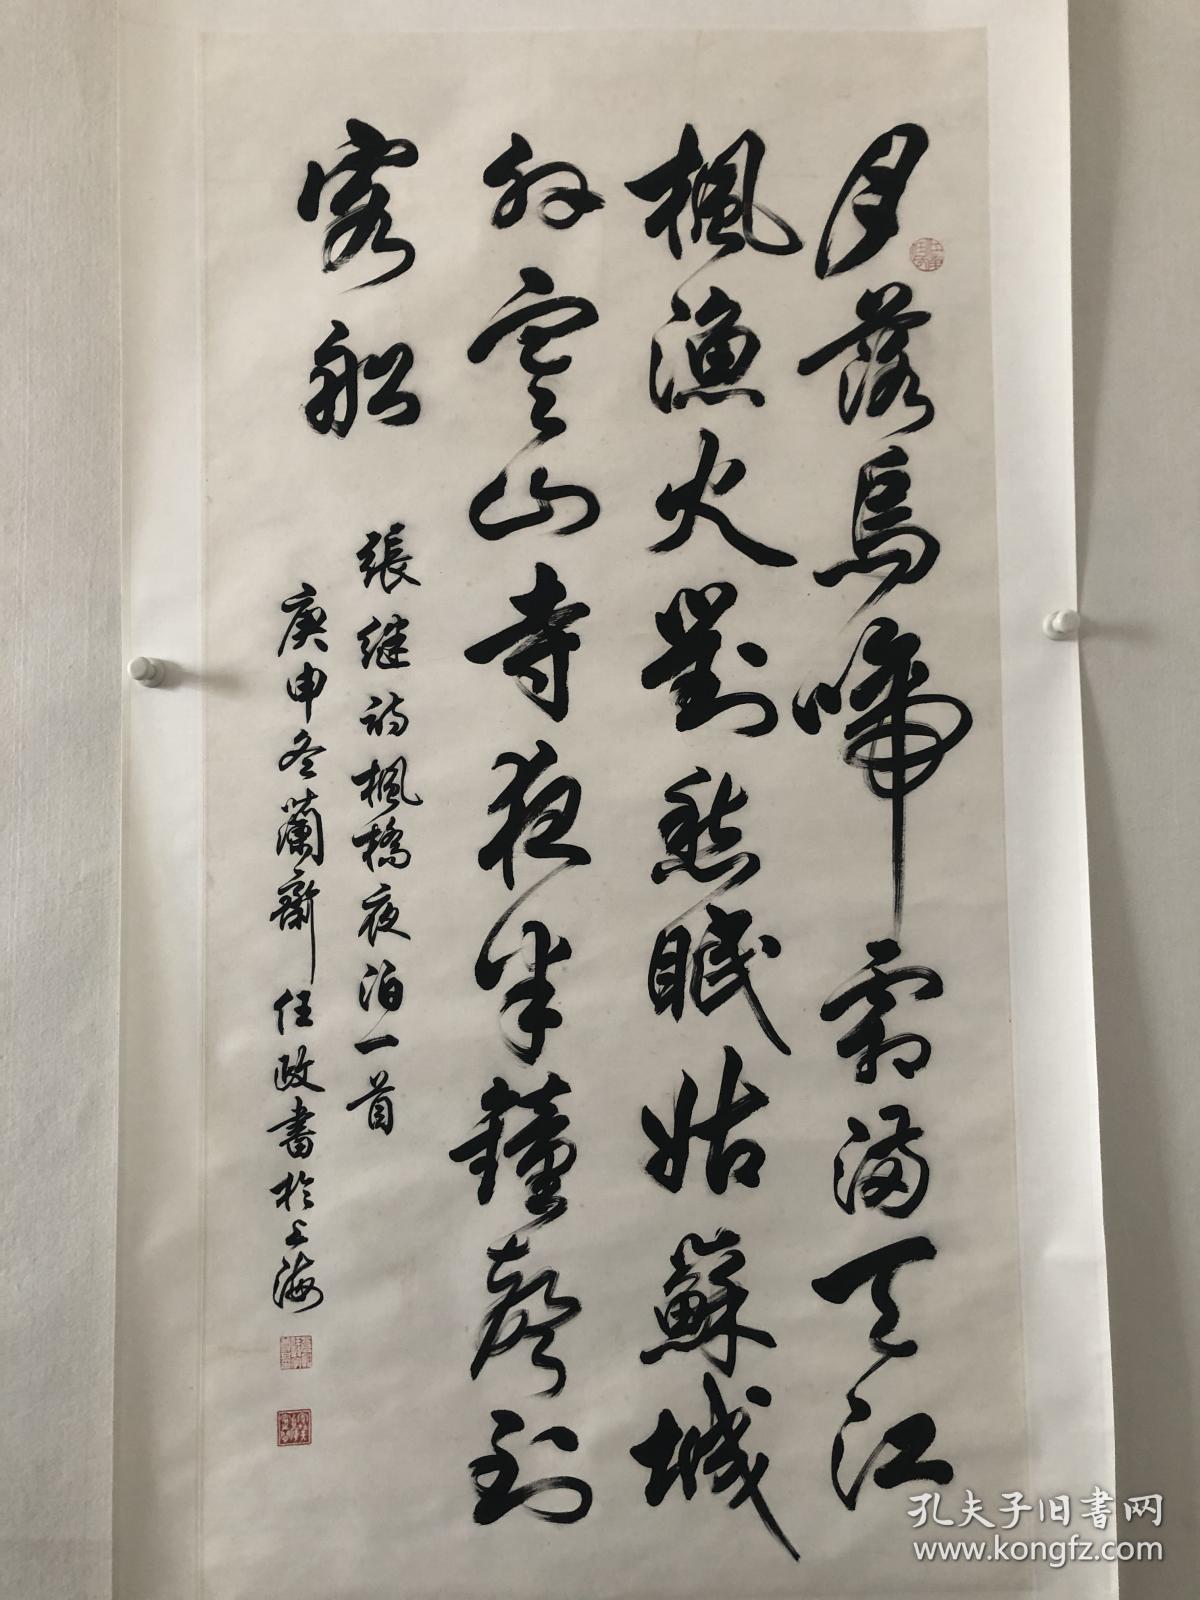 月落烏啼霜满天江
楓漁火對愁眠姑蘇城
外寒山寺夜半鐘聲到
客船
張继诗楓橋夜泊一首
庚申冬蘭齋任政書於上海
孔夫子旧书网
www.kongfz.com